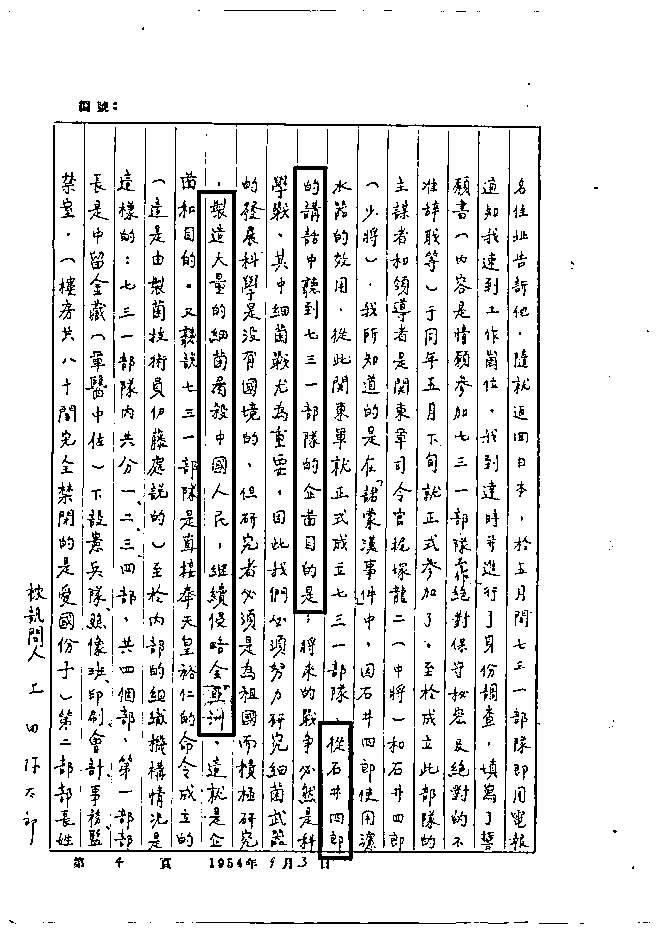 編號：
名住址告訴他，隨就返回日本，於五月間七三一部隊即用電報
通知我速到工作崗位，我到達時并進行了身份調查，填寫了誓
願書（內容是情願參加七三一部隊作絕對保守秘密及絕對的不
准辞職等）于同年五月下旬就正式參加了。至於成立此部隊的
主謀者和領導者是関東軍司令官梅塚龍二（中將）和石井四郎
（少將），我所知道的是在「諾蒙漢」事件中，因石井四郎使用濾
水器的效用，從此関東軍就正式成立七三一部隊，從石井四郎
的講話中聽到七三一部隊的企啚目的是，將來的戰爭必然是科
學戰，其中細菌戰尤為重要，因此我們必須努力研究細菌武器
的發展科學是没有國境的，但研究者必須是為祖國而積極研究
，製造大量的細菌屠殺中國人民，继續侵略全亞洲，這就是企
啚和目的。又聽説七三一部隊是直接奉天皇裕仁的命令成立的
（這是由製菌技術員伊藤處説的）至於內部的組織機構情况是
這樣的：七三一部隊內共分一、二、三、四部，共四個部，第一部部
長是中留金藏（軍醫中佐）下設憲兵隊、照像班、印刷、會計、事務、監
禁室，（樓房共八十間完全禁閉的是愛國份子）第二部部長姓
被訊問人 上田弥太郎
第 4 頁 1954年 9月 3日